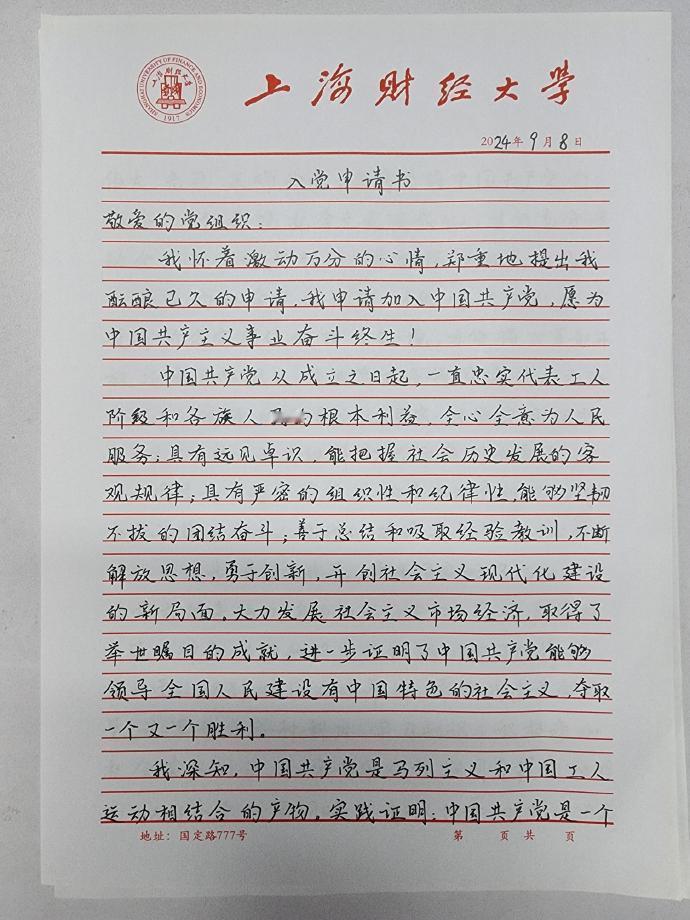 SHANGHAI UNIVERSITY OF FINANCE AND ECONOMICS
上海财经大学
1917
上海财经大学
2024年9月8日
入党申请书
敬爱的党组织：
我怀着激动万分的心情，郑重地提出我
酝酿已久的申请，我申请加入中国共产党，愿为
中国共产主义事业奋斗终生！
中国共产党从成立之日起，一直忠实代表工人
阶级和各族人的根本利益，全心全意为人民
服务；具有远见卓识，能把握社会历史发展的客
观规律；具有严密的组织性和纪律性，能够坚韧
不拔的团结奋斗；善于总结和吸取经验教训，不断
解放思想，勇于创新，开创社会主义现代化建设
的新局面。大力发展社会主义市场经济，取得了
举世瞩目的成就，进一步证明了中国共产党能够
领导全国人民建设有中国特色的社会主义，夺取
一个又一个胜利。
我深知，中国共产党是马列主义和中国工人
运动相结合的产物。实践证明：中国共产党是一个
地址：国定路777号 第 页 共 页